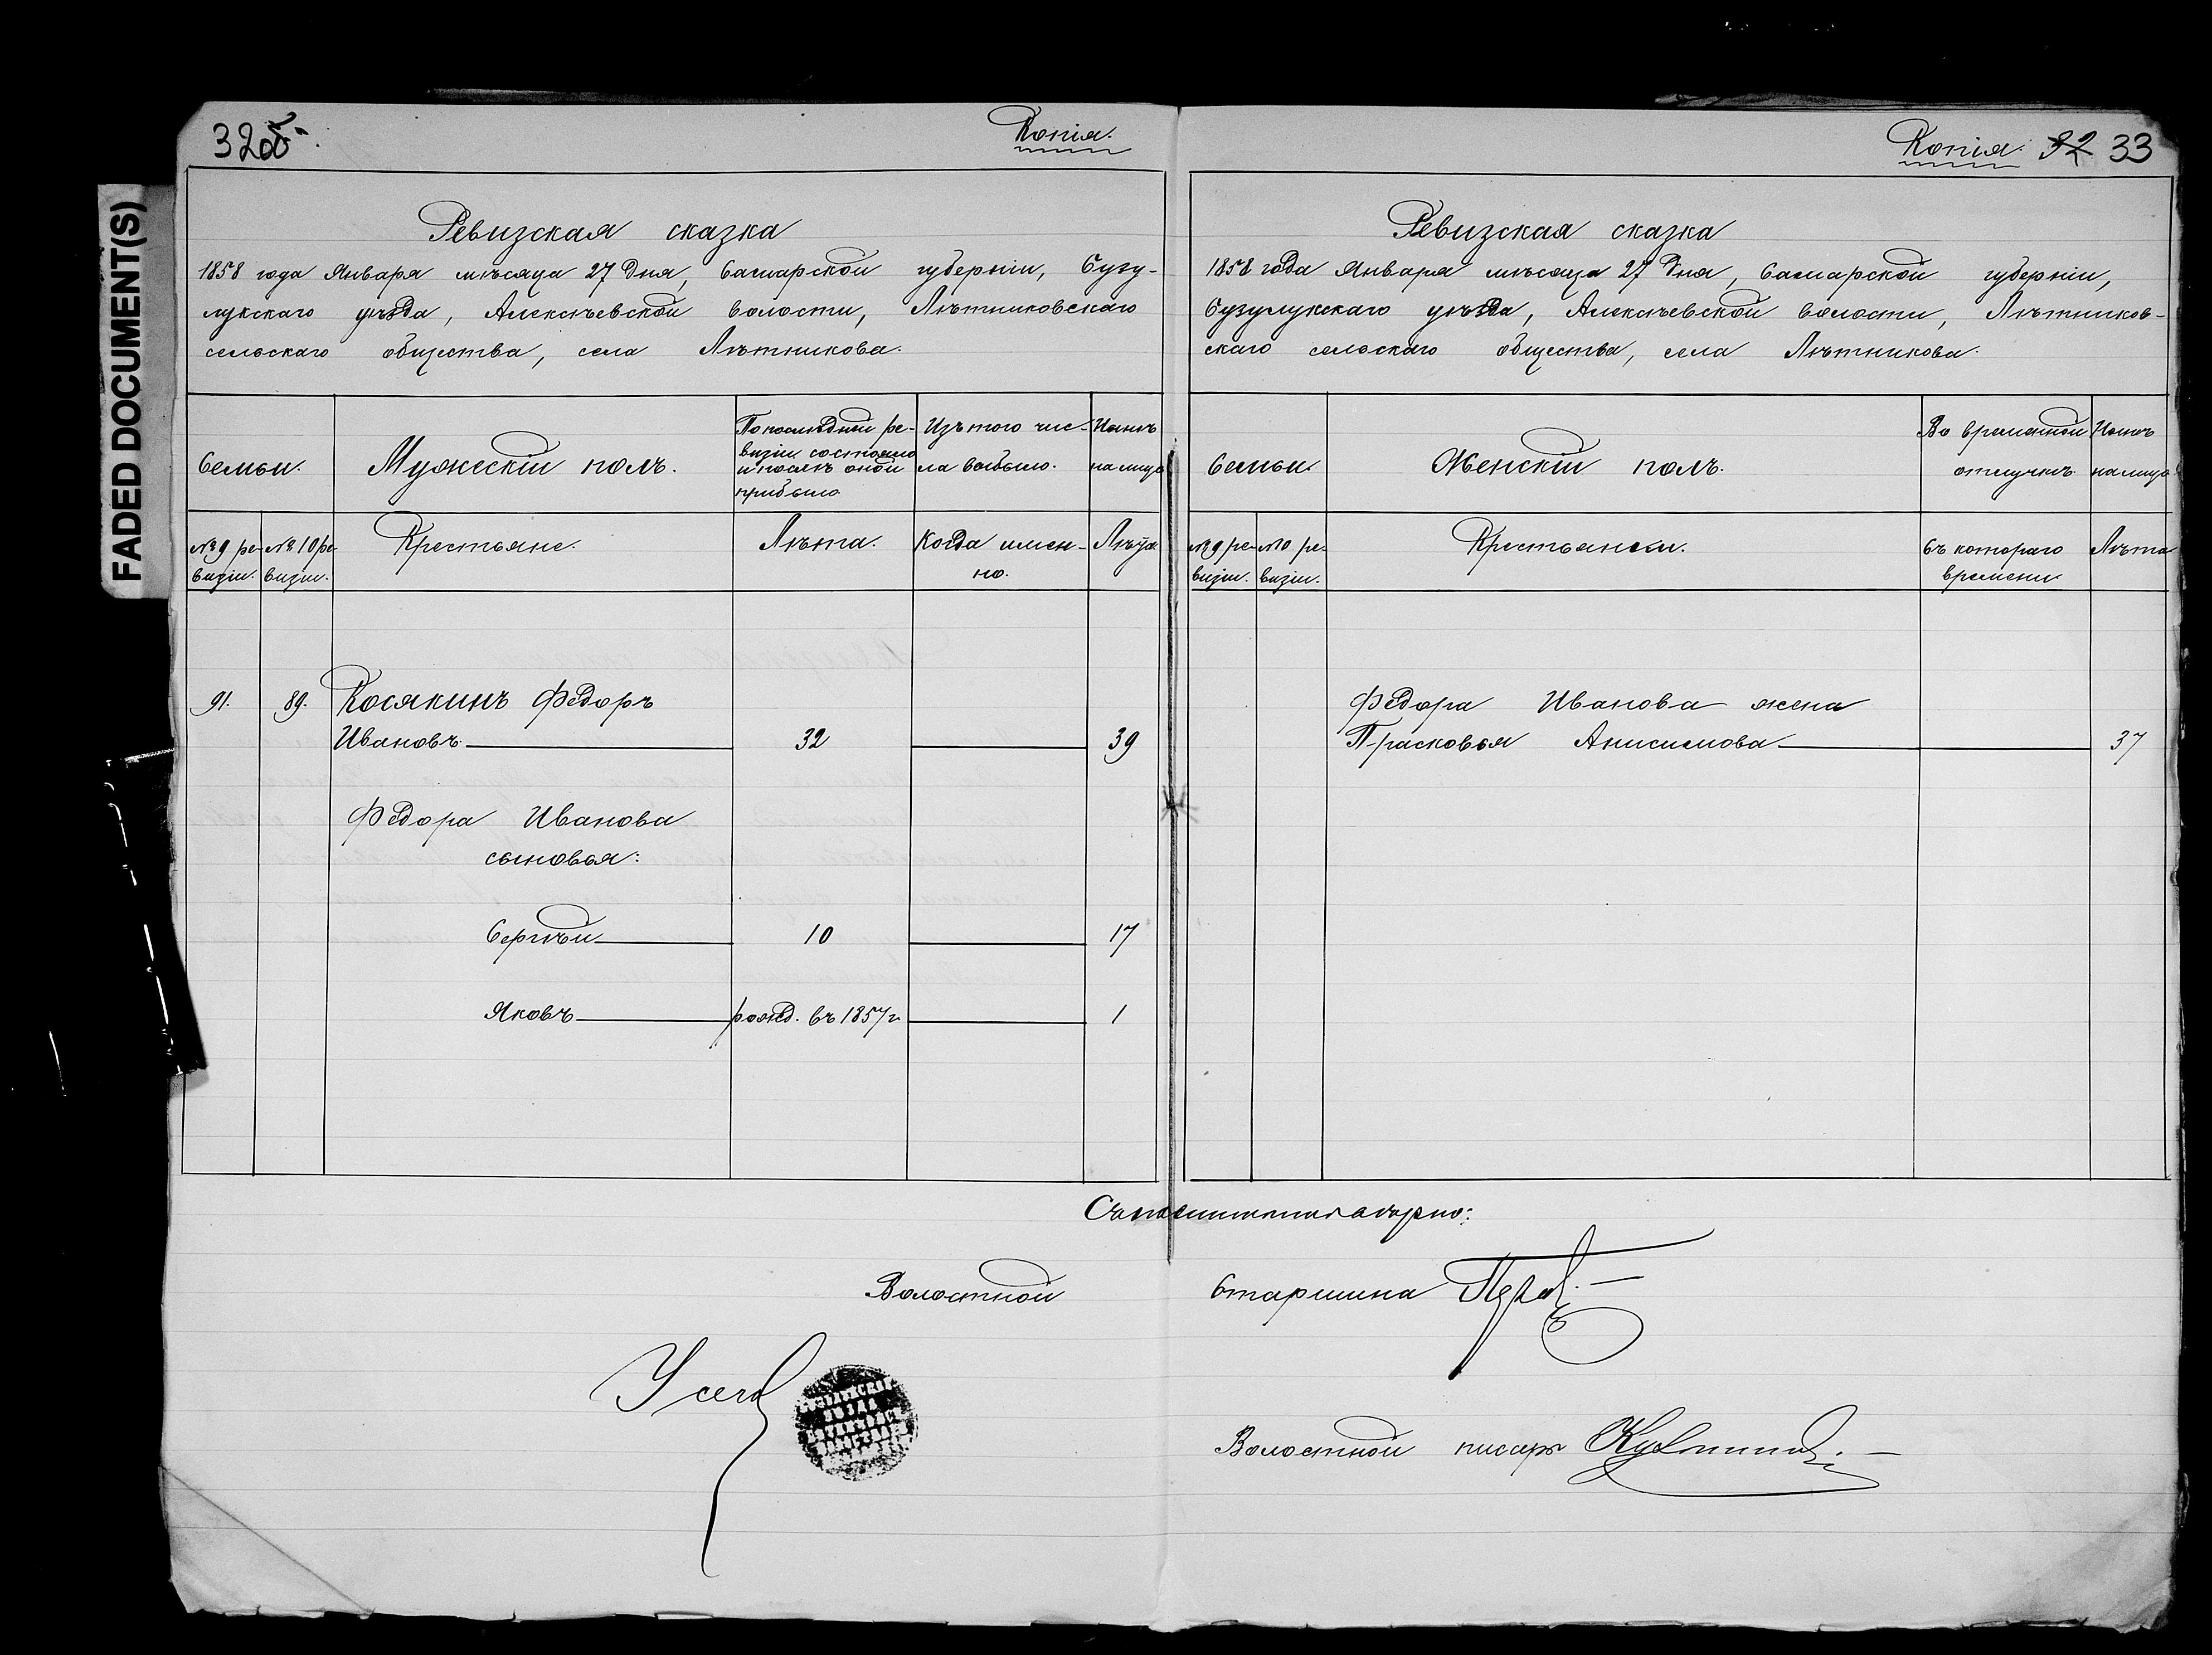 FADED DOCUMENT(S)
32об.
Копія.
Ревизская сказка
1858 года Января мѣсяца 27 дня, Самарской губерніи, Бузу-
лукскаго уѣзда, Алексѣевской волости, Лѣтниковскаго
сельскаго общества, села Лѣтникова.
Семьи.
Мужескій полъ.
По послѣдней ре-
визіи состояло
и послѣ оной
прибыло
Изъ того чис-
ла выбыло.
Нынѣ
на лицо
№ 9 ре-
визіи.
№ 10 ре-
визіи.
Крестьяне.
Лѣта.
Когда имен-
но.
Лѣта.
91. 89. Косякинъ Федоръ
Ивановъ. 32 39
Федора Иванова
сыновья:
Сергѣй 10 17
Яковъ рожд. въ 1857 г. 1
Копія. 32 33
Ревизская сказка
1858 года Января мѣсяца 27 дня, Самарской губерніи,
Бузулукскаго уѣзда, Алексѣевской волости, Лѣтников-
скаго сельскаго общества, села Лѣтникова.
Семьи.
Женскій полъ.
Во временной
отлучкѣ.
Нынѣ
на лицо
№ 9 ре-
визіи.
№10 ре-
визіи.
Крестьянки.
Съ котораго
времени.
Лѣта
Федора Иванова жена
Прасковья Анисимова 37
вѣрно:
Волостной Старшина
Волостной писарь